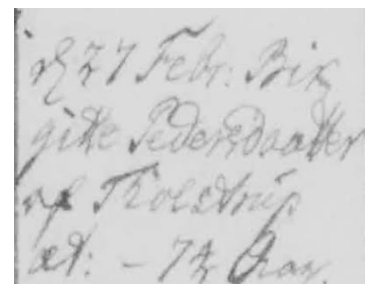 d 27 Febr: Bir
gitte Pedersdaatter
af Tholstrup
æt: - 74 Aar.